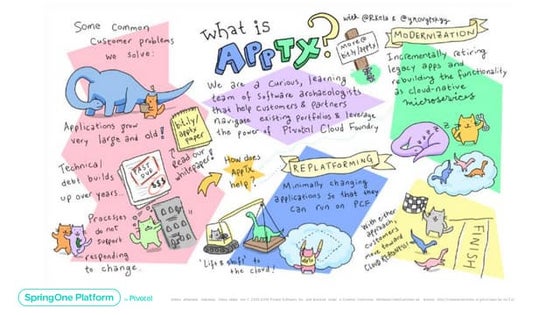 Some Common
Customer problems
we solve:
Applications grow
very large and old!
bit.ly/
apptx
paper
Read our
whitepaper!
Technical
debt builds
up over years...
PAST
DUE
$$$
Processes
do not
support
responding
to change.
what is
APPTX?
with @RKela &
more @
bit.ly/apptx
We are a curious, learning
team of software archaeologists
that help customers & partners
navigate existing portfolios & leverage
the power of Pivotal Cloud Foundry
How does
AppTx
help?
REPLATFORMING
Minimally changing
applications so that they
can run on PCF
"Lift & shift" to
the cloud!
MODERNIZATION
Incrementally retiring
legacy apps and
rebuilding the functionality
as cloud-native
microservices
With either
approach,
customers
move toward
CLOUD READINESS!
FINISH
SpringOne Platform
by Pivotal